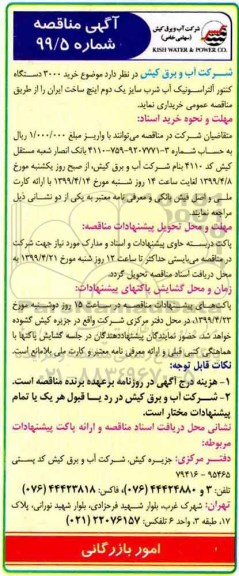 آگهی مناقصه
شماره ۹۹/۵
شرکت آب و برق کیش
(سهامی خاص)
KISH WATER & POWER CO.
شرکت آب و برق کیش در نظر دارد موضوع خرید ۳۰۰۰ دستگاه
کنتور آلتراسونیک آب شرب سایز یک دوم اینچ ساخت ایران را از طریق
مناقصه عمومی خریداری نماید.
مهلت و نحوه خرید اسناد:
متقاضیان شرکت در مناقصه می‌توانند با واریز مبلغ ۱/۰۰۰/۰۰۰ ریال
به حساب شماره ۳-۹۲۰۷۷۷۱-۷۵۹-۴۱۱۰ بانک انصار شعبه مستقل
کیش کد ۴۱۱۰ بنام شرکت آب و برق کیش، از صبح روز یکشنبه مورخ
۱۳۹۹/۴/۸ لغایت ساعت ۱۴ روز شنبه مورخ ۱۳۹۹/۴/۱۴ با ارائه کارت
ملی و اصل فیش بانکی و معرفی نامه معتبر به یکی از دو نشانی ذیل
مراجعه نمایند.
مهلت و محل تحویل پیشنهادات مناقصه:
پاکت دربسته حاوی پیشنهادات و اسناد و مدارک مورد نیاز جهت شرکت
در مناقصه می‌بایستی حداکثر تا ساعت ۱۲ روز شنبه مورخ ۱۳۹۹/۴/۲۱ به
محل دریافت اسناد مناقصه تحویل گردد.
زمان و محل گشایش پاکتهای پیشنهادات:
پاکت‌های پیشنهادات مناقصه در ساعت ۱۵ روز دوشنبه مورخ
۱۳۹۹/۴/۲۳، در محل دفتر مرکزی شرکت واقع در جزیره کیش گشوده
خواهد شد. حضور نمایندگان پیشنهاددهندگان در جلسه گشایش پاکتها با
هماهنگی کتبی قبلی و ارائه معرفی نامه معتبر و کارت ملی بلامانع است.
نکات قابل توجه:
۱- هزینه درج آگهی در روزنامه برعهده برنده مناقصه است.
۲- شرکت آب و برق کیش در رد یا قبول هر یک یا تمام
پیشنهادات مختار است.
نشانی محل دریافت اسناد مناقصه و ارائه پاکت پیشنهادات
مربوطه:
دفتر مرکزی: جزیره کیش. شرکت آب و برق کیش کد پستی
۹۵۴۶۵ - ۷۹۴۱۶
تلفن: ۳ و ۴۴۴۲۴۸۸۰ (۰۷۶)، فاکس: ۴۴۴۲۳۸۱۸ (۰۷۶)
تهران: شهرک غرب، بلوار شهید فرحزادی، بلوار شهید نورانی، پلاک
۱۷، طبقه ۳، واحد ۶ تلفکس: ۲۲۰۷۶۱۵۷ (۰۲۱)
امور بازرگانی